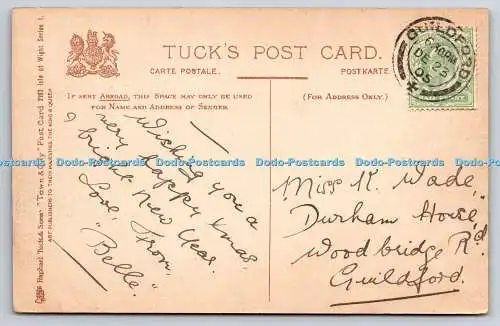 TUCK'S POST CARD.
CARTE POSTALE.
POSTKARTE.
IF SENT ABROAD, THIS SPACE MAY ONLY BE USED
FOR NAME AND ADDRESS OF SENDER
(FOR ADDRESS ONLY.)
GUILDFORD
DE 25
05
Wishing you a
very happy Xmas,
& bright New Year.
Love from
"Belle."
Miss K. Wade,
Durham House,
Woodbridge Rd.
Guildford.
Raphael Tuck & Sons' "Town & City" Post Card 2193 Isle of Wight Series I.
ART PUBLISHERS TO THEIR MAJESTIES THE KING & QUEEN
Dodo-Postcards Dodo-Postcards Dodo-Postcards Dodo-Postcards Dodo-Postcards